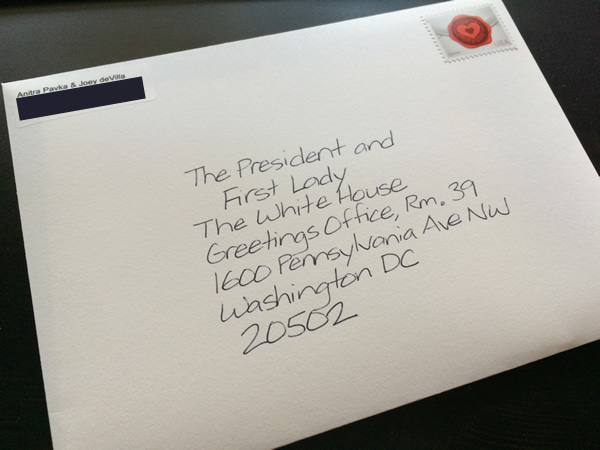 Anitra Pavka & Joey deVilla
The President and
First Lady
The White House
Greetings Office, Rm. 39
1600 Pennsylvania Ave NW
Washington DC
20502